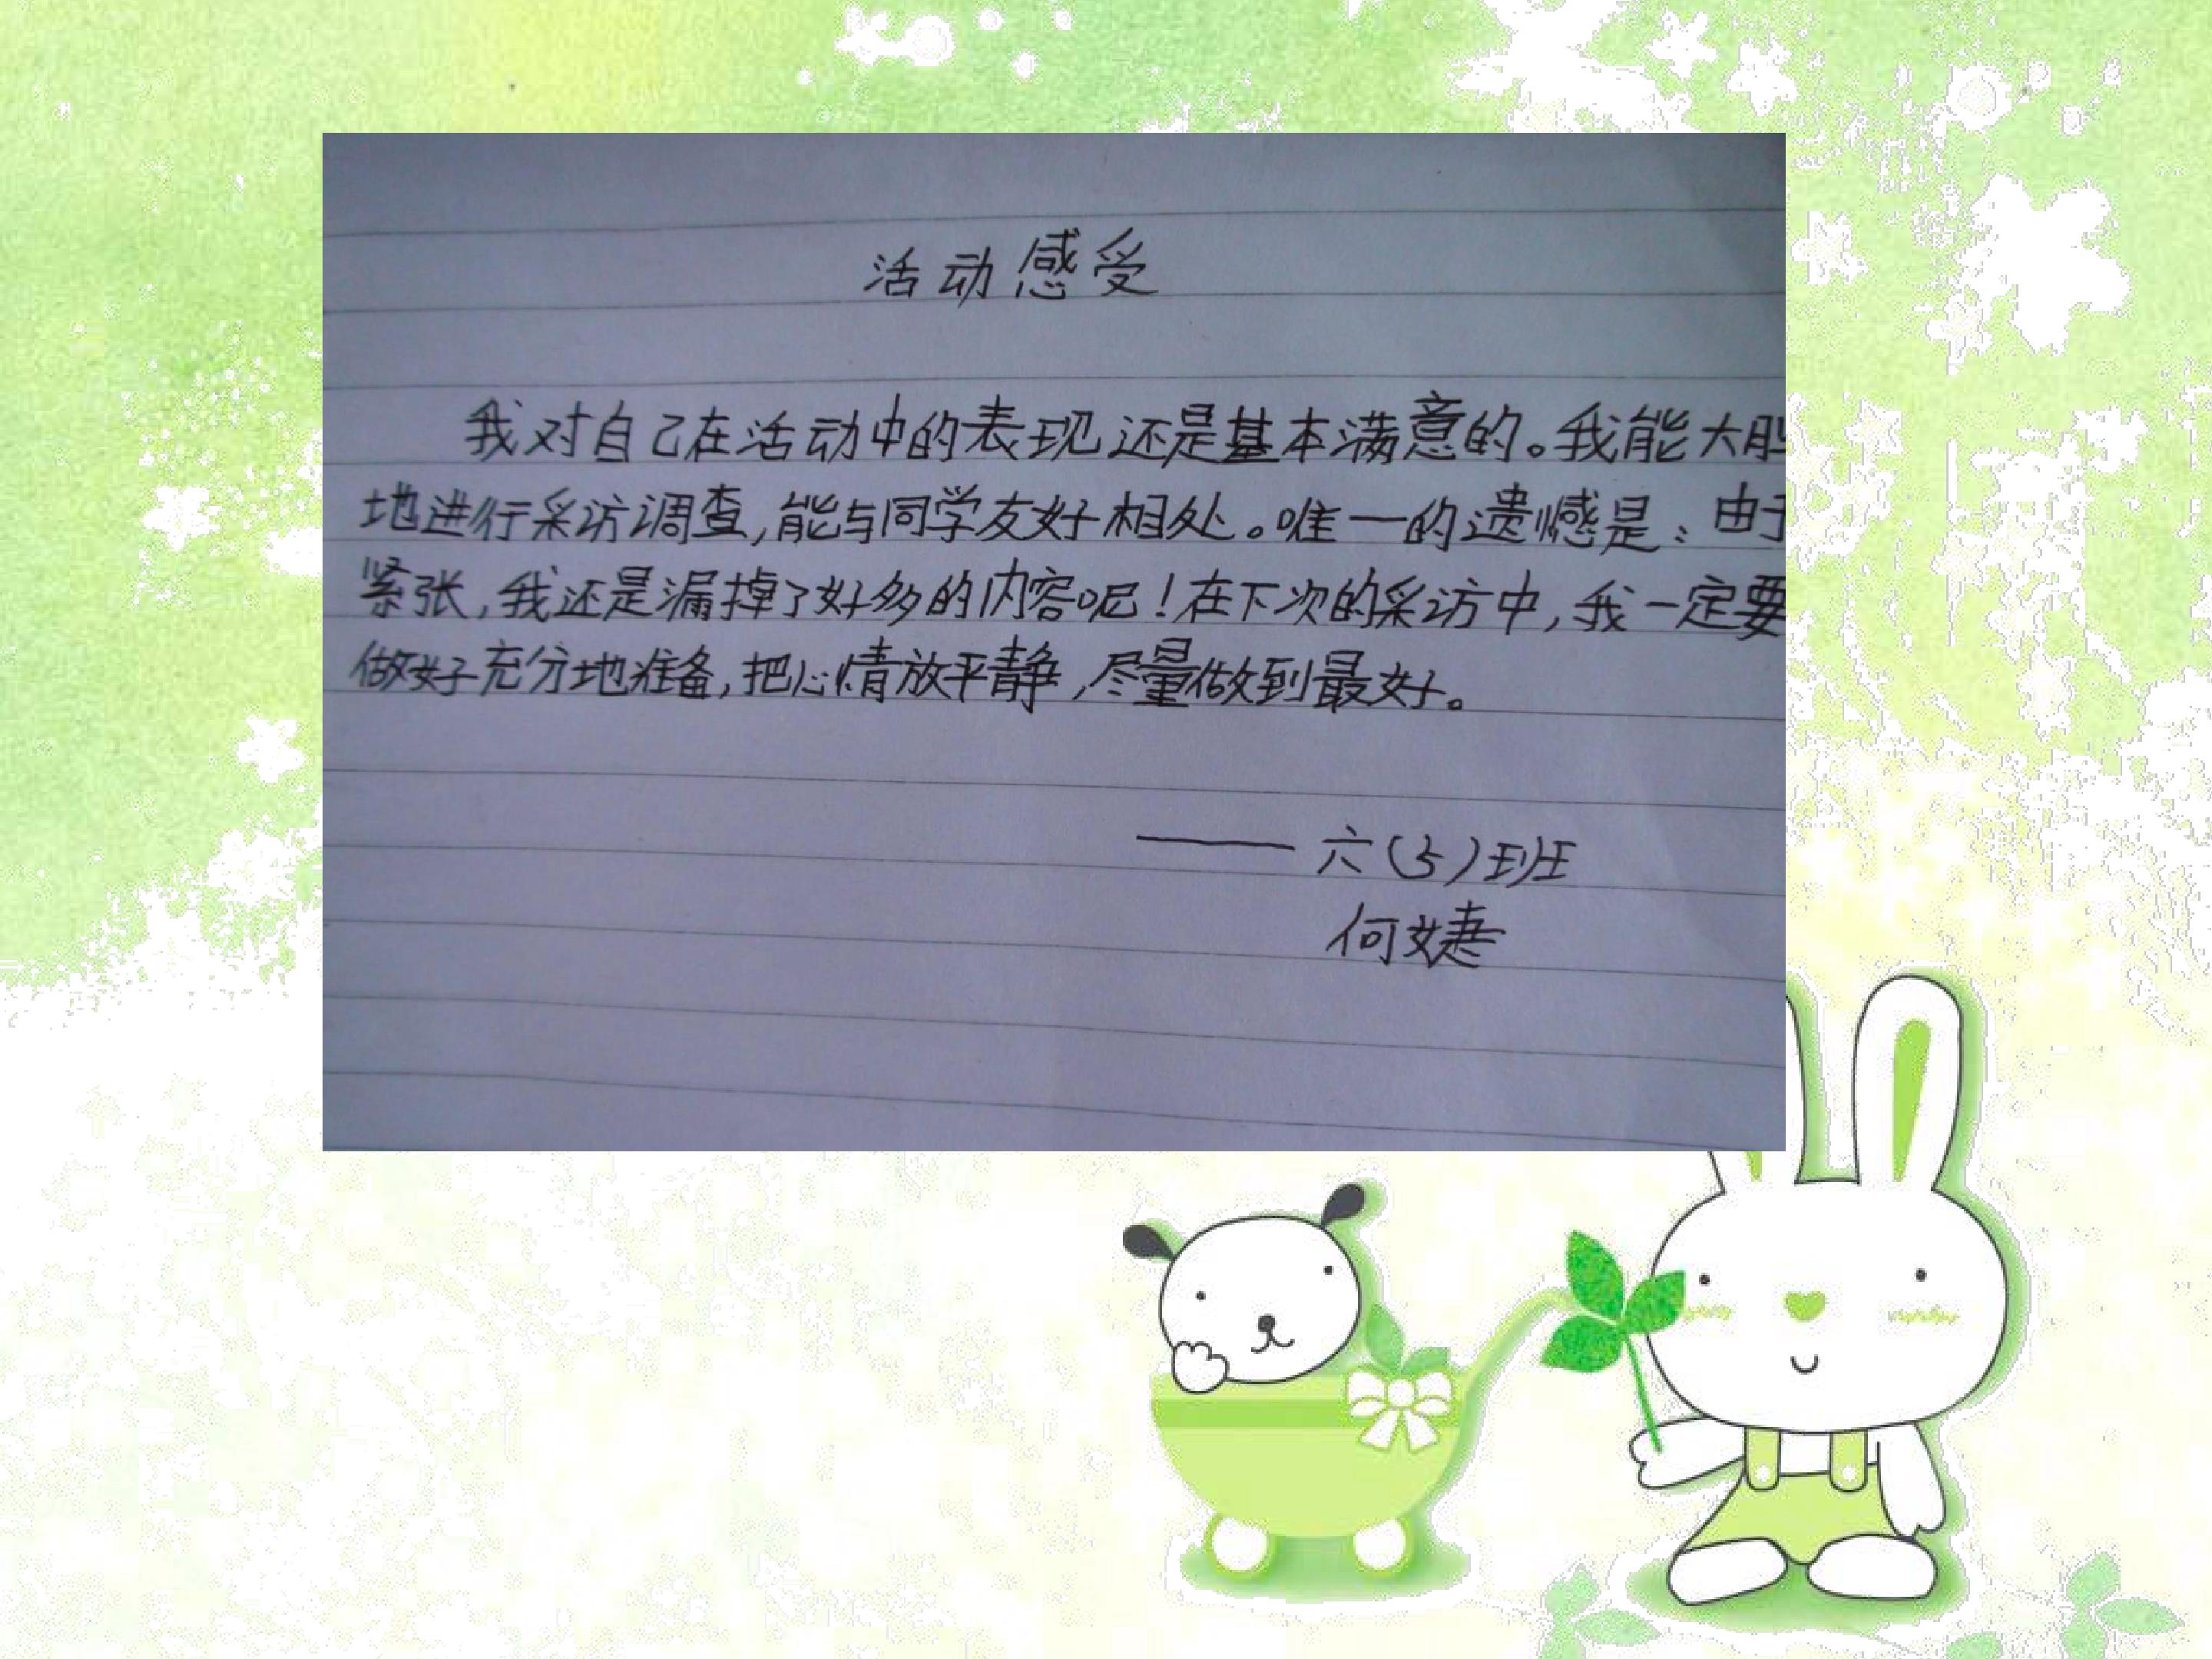 活动感受
我对自己在活动中的表现还是基本满意的。我能大胆
地进行采访调查,能与同学友好相处。唯一的遗憾是:由于
紧张,我还是漏掉了好多的内容呢!在下次的采访中,我一定要
做好充分地准备,把心情放平静,尽量做到最好。
——六(5)班
何婕